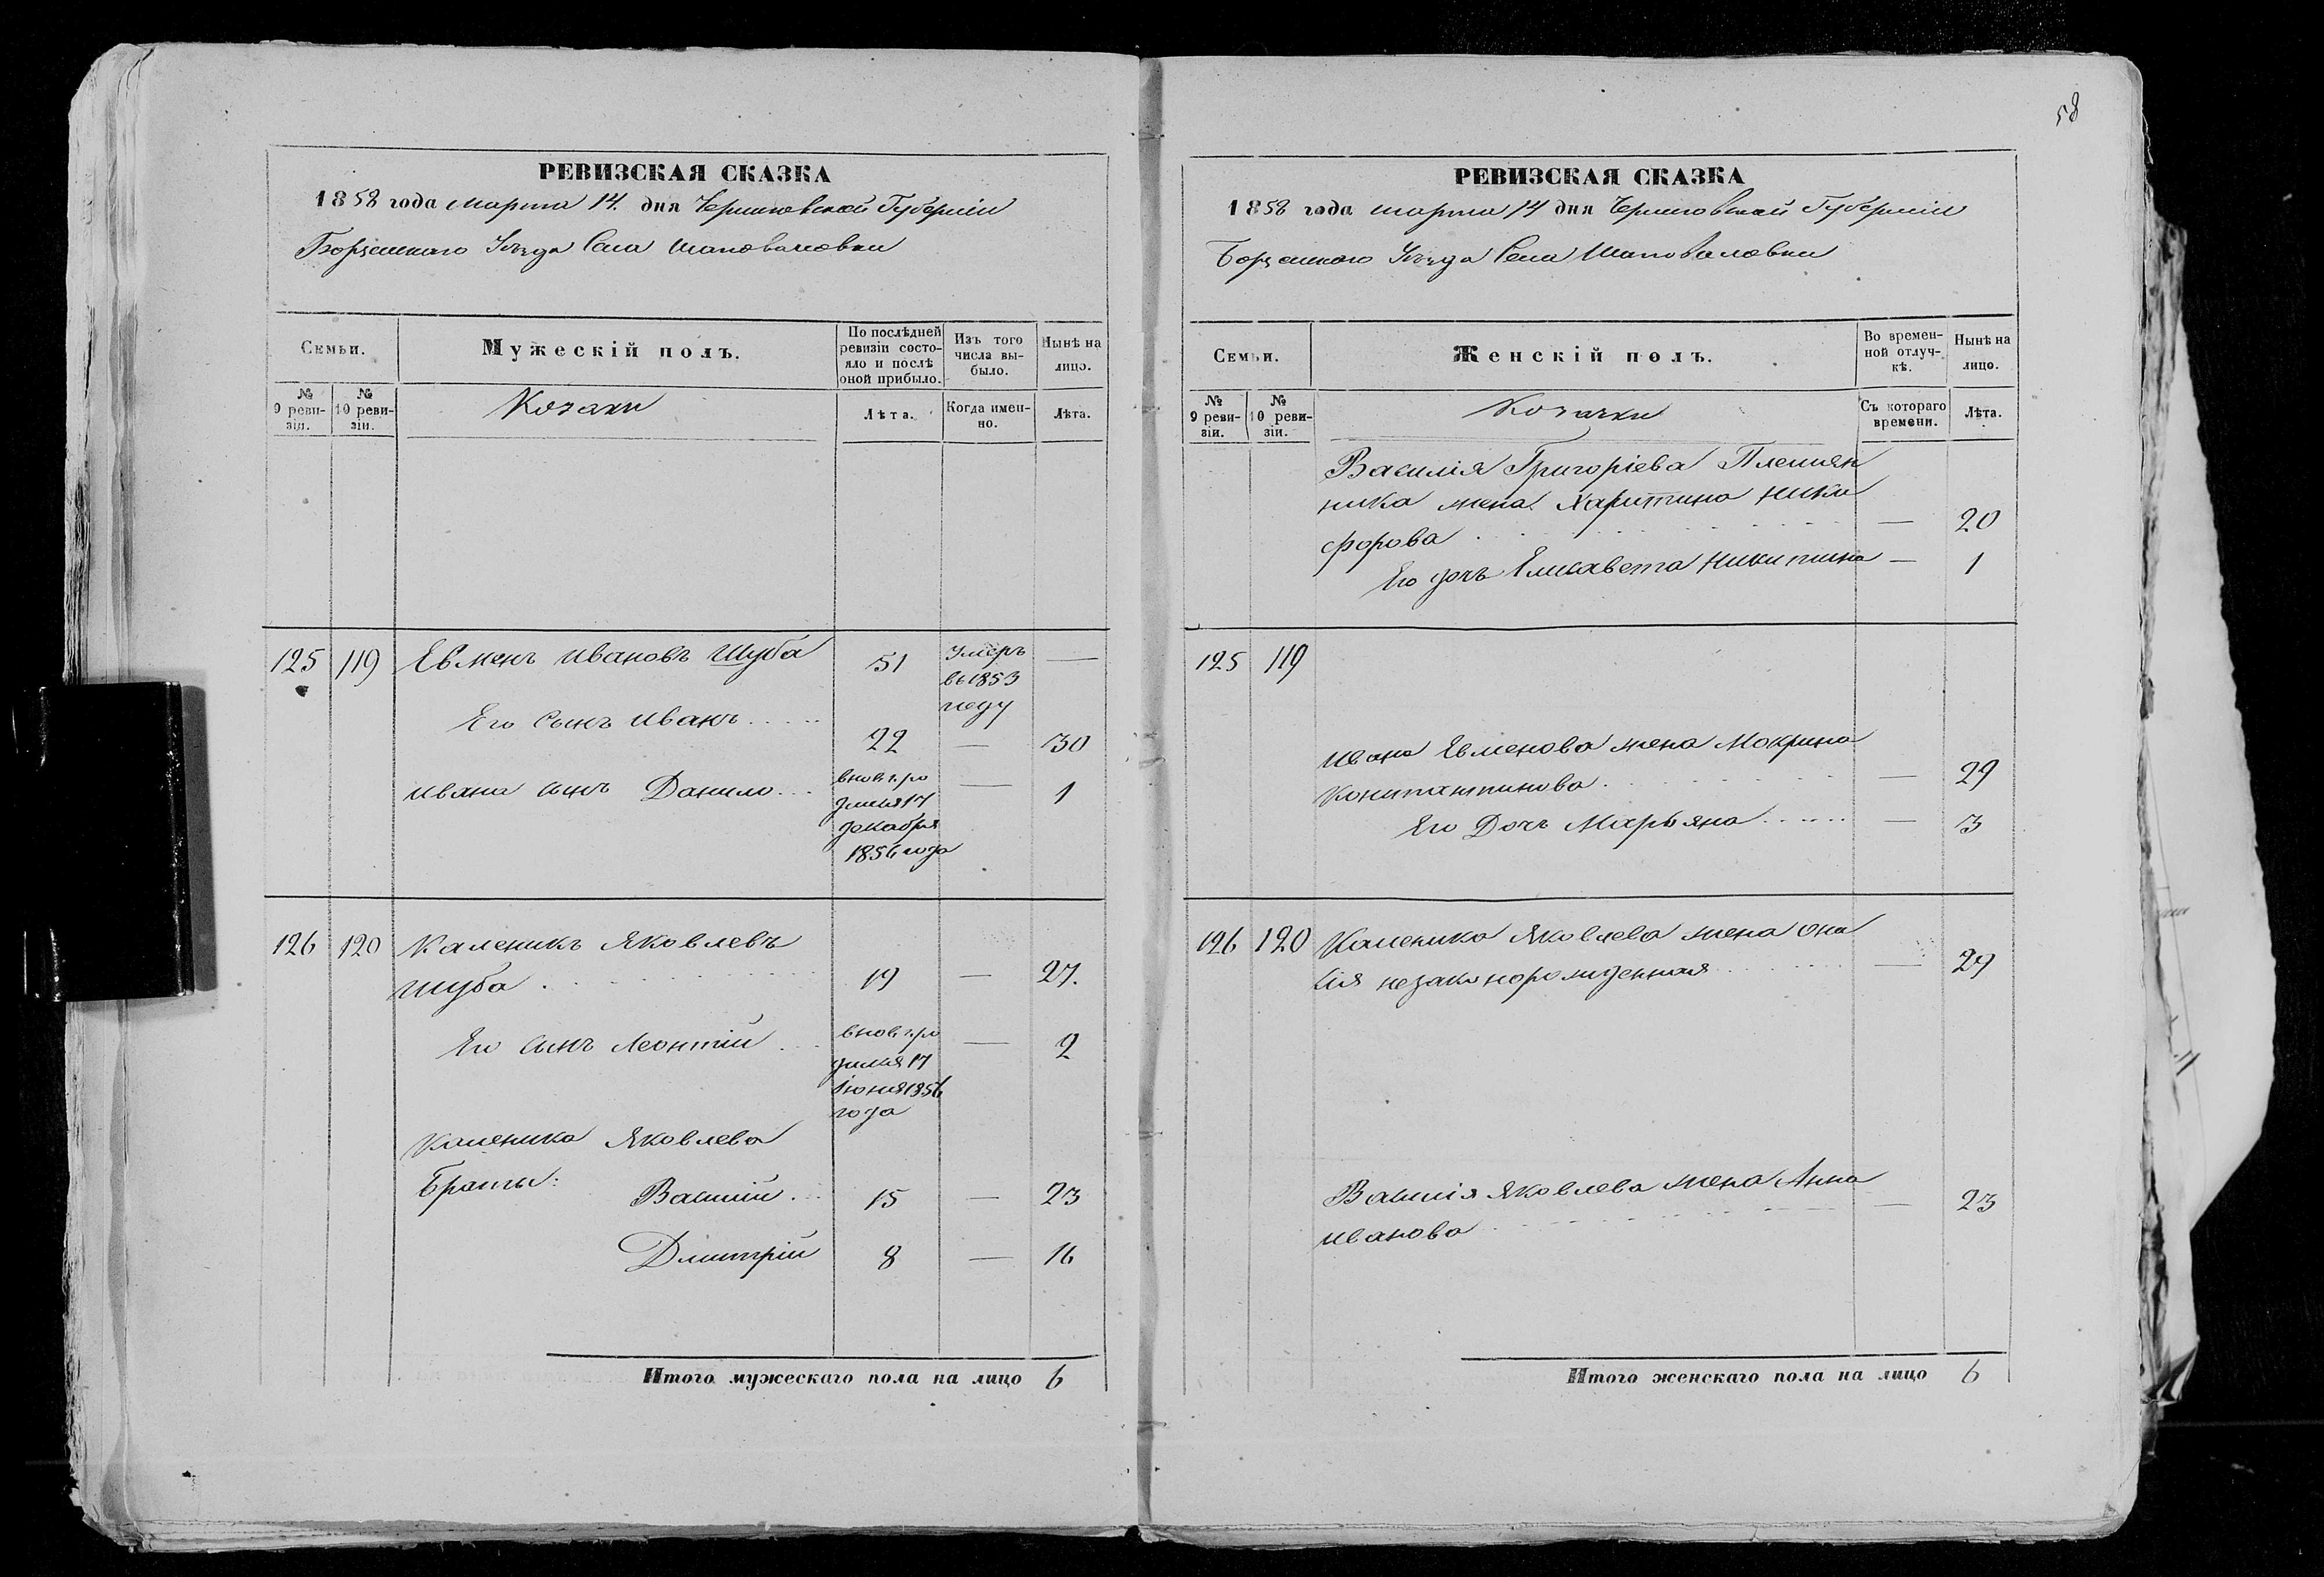 58
РЕВИЗСКАЯ СКАЗКА
1858 года марта 14. дня Черниговской Губерніи
Борзенскаго Уѣзда Села Шаповаловки
Семьи.
Мужескій полъ.
По послѣдней ревизіи состояло и послѣ оной прибыло.
Изъ того числа выбыло.
Нынѣ на лицо.
№ 9 ревизіи.
№ 10 ревизіи.
Козаки
Лѣта.
Когда именно.
Лѣта.
125 119 Евменъ Ивановъ Шуба 51 Умеръ —
въ 1853
году
Его сынъ Иванъ..... 22 — 30
Ивана сынъ Данило... вновь ро — 1
дился 17
декабря
1856 года
126 120 Каленикъ Яковлевъ
Шуба 19 — 27.
Его сынъ Леонтій вновь ро — 2
дился 17
Іюня 1856
года
Каленика Яковлева
Братья: Василій... 15 — 23
Дмитрій 8 — 16
Итого мужескаго пола на лицо 6
РЕВИЗСКАЯ СКАЗКА
1858 года марта 14 дня Черниговской Губерніи
Борзенскаго Уѣзда Села Шаповаловки
Семьи.
Женскій полъ.
Во временной отлучкѣ.
Нынѣ на лицо.
№ 9 ревизіи.
№ 10 ревизіи.
Козачки
Съ котораго времени.
Лѣта.
Василія Григоріева Племян
ника жена Харитина Ники
форова — 20
Его дочь Елисавета Никитина — 1
125 119
Ивана Евменова жена Мокрина
Константинова — 29
Его Дочь Марьяна...... — 3
126 120 Каленика Яковлева жена Она
сія незаконорожденная — 29
Василія Яковлева жена Анна
Иванова — 23
Итого женскаго пола на лицо 6